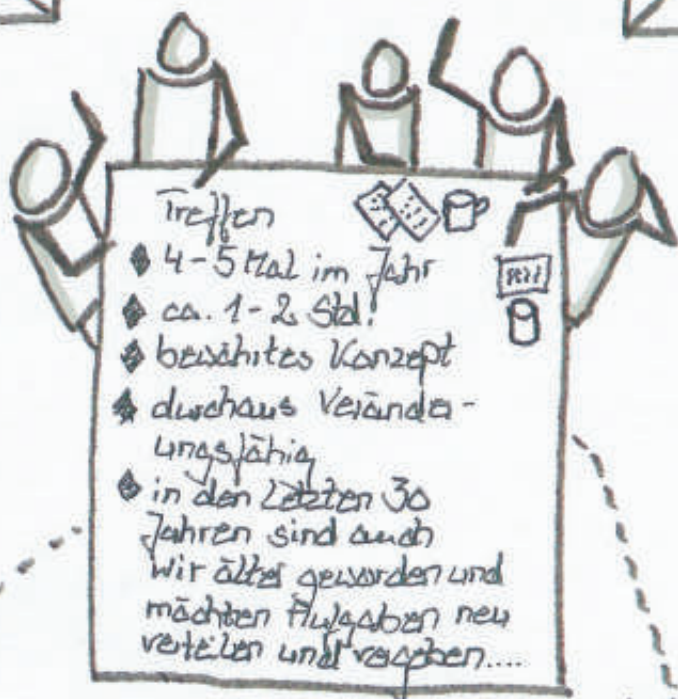 Treffen
4-5 Mal im Jahr
ca. 1-2 Std!
bewährtes Konzept
durchaus Veränder-
ungsfähig
in den Letzten 30
Jahren sind auch
wir älter geworden und
möchten Aufgaben neu
verteilen und vergeben....